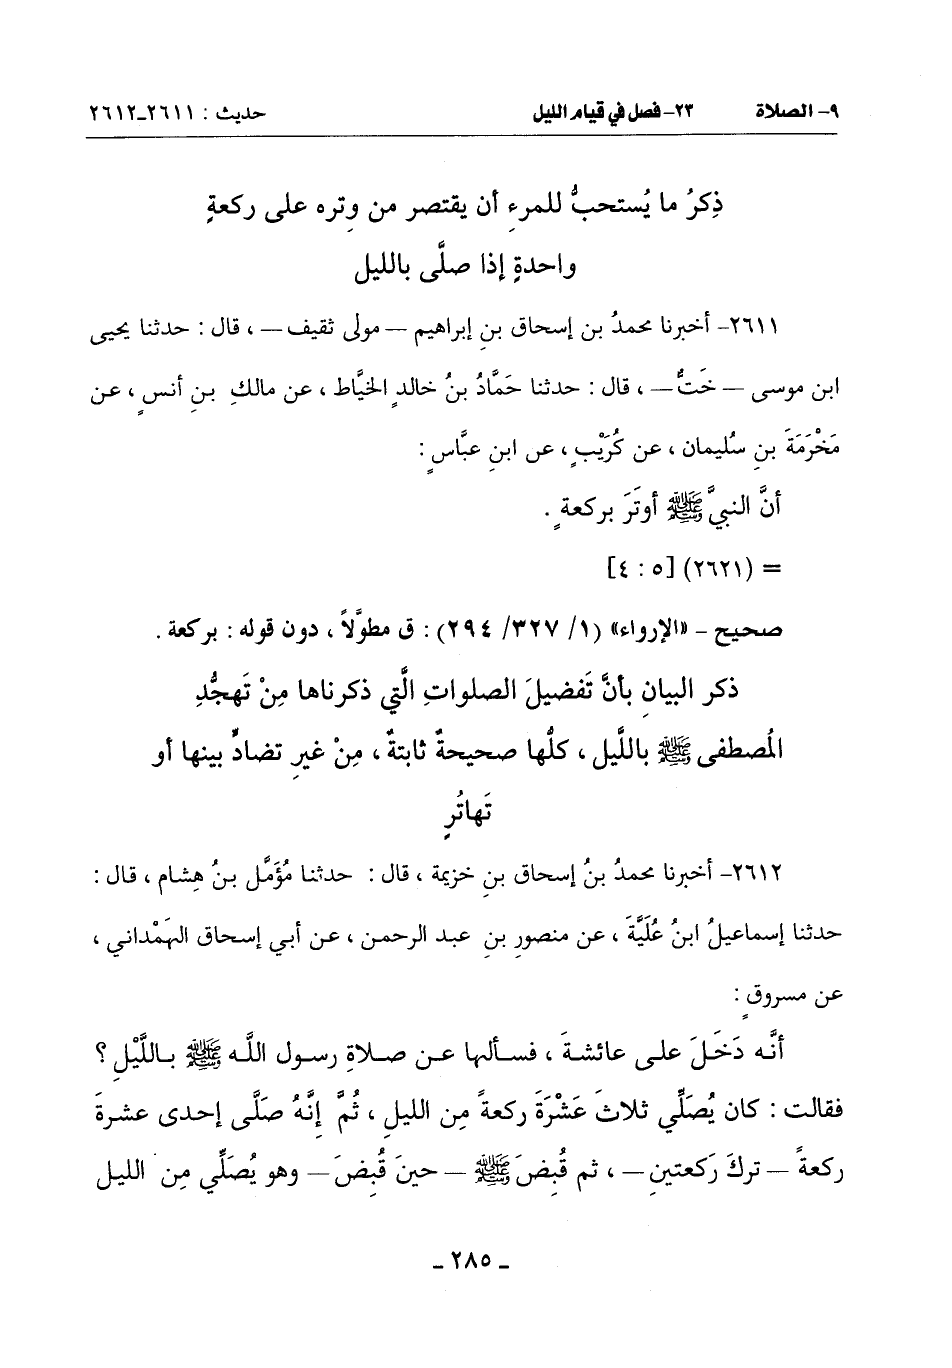 ٩- الصلاة ٢٣- فصل في قيام الليل حديث : ٢٦١١-٢٦١٢
ذِكرُ ما يُستحبُّ للمرءِ أن يقتصر من وِتره على ركعةٍ
واحدةٍ إذا صلَّى بالليل
٢٦١١- أخبرنا محمدُ بن إسحاق بنِ إبراهيم – مولى ثقيف – ، قال : حدثنا يحيى
ابن موسى – خَتُّ – ، قال : حدثنا حَمَّادُ بنُ خالدٍ الخيَّاط ، عن مالكِ بنِ أنسٍ ، عن
مَخْرَمَةَ بنِ سُليمان ، عن كُرَيْبٍ ، عن ابنِ عبَّاسٍ :
أنَّ النبيَّ ﷺ أوتَرَ بركعةٍ .
= (٢٦٢١) [٥ : ٤]
صحيح - «الإرواء» (١/ ٣٢٧/ ٢٩٤) : ق مطوَّلاً ، دون قوله : بركعة .
ذكر البيانِ بأنَّ تَفضيلَ الصلواتِ الَّتي ذكرناها مِنْ تَهجُّدِ
المُصطفى ﷺ باللَّيل ، كلُّها صحيحةٌ ثابتةٌ ، مِنْ غيرِ تضادٍّ بينها أو
تَهاتُرٍ
٢٦١٢- أخبرنا محمدُ بنُ إسحاق بنِ خزيمة ، قال : حدثنا مُؤَمَّل بنُ هِشام ، قال :
حدثنا إسماعيلُ ابنُ عُلَيَّةَ ، عن منصورِ بنِ عبد الرحمن ، عن أبي إسحاق الهَمْداني ،
عن مسروقٍ :
أنَّه دَخَلَ على عائشةَ ، فسألها عن صلاةِ رسول اللَّه ﷺ باللَّيْلِ ؟
فقالت : كان يُصَلِّي ثلاثَ عَشْرَةَ ركعةً مِن الليلِ ، ثُمَّ إنَّهُ صَلَّى إحدى عشرةَ
ركعةً – تركَ رَكعتينِ – ، ثم قُبِضَ ﷺ – حينَ قُبِضَ – وهو يُصَلِّي مِن الليل
- ٢٨٥ -